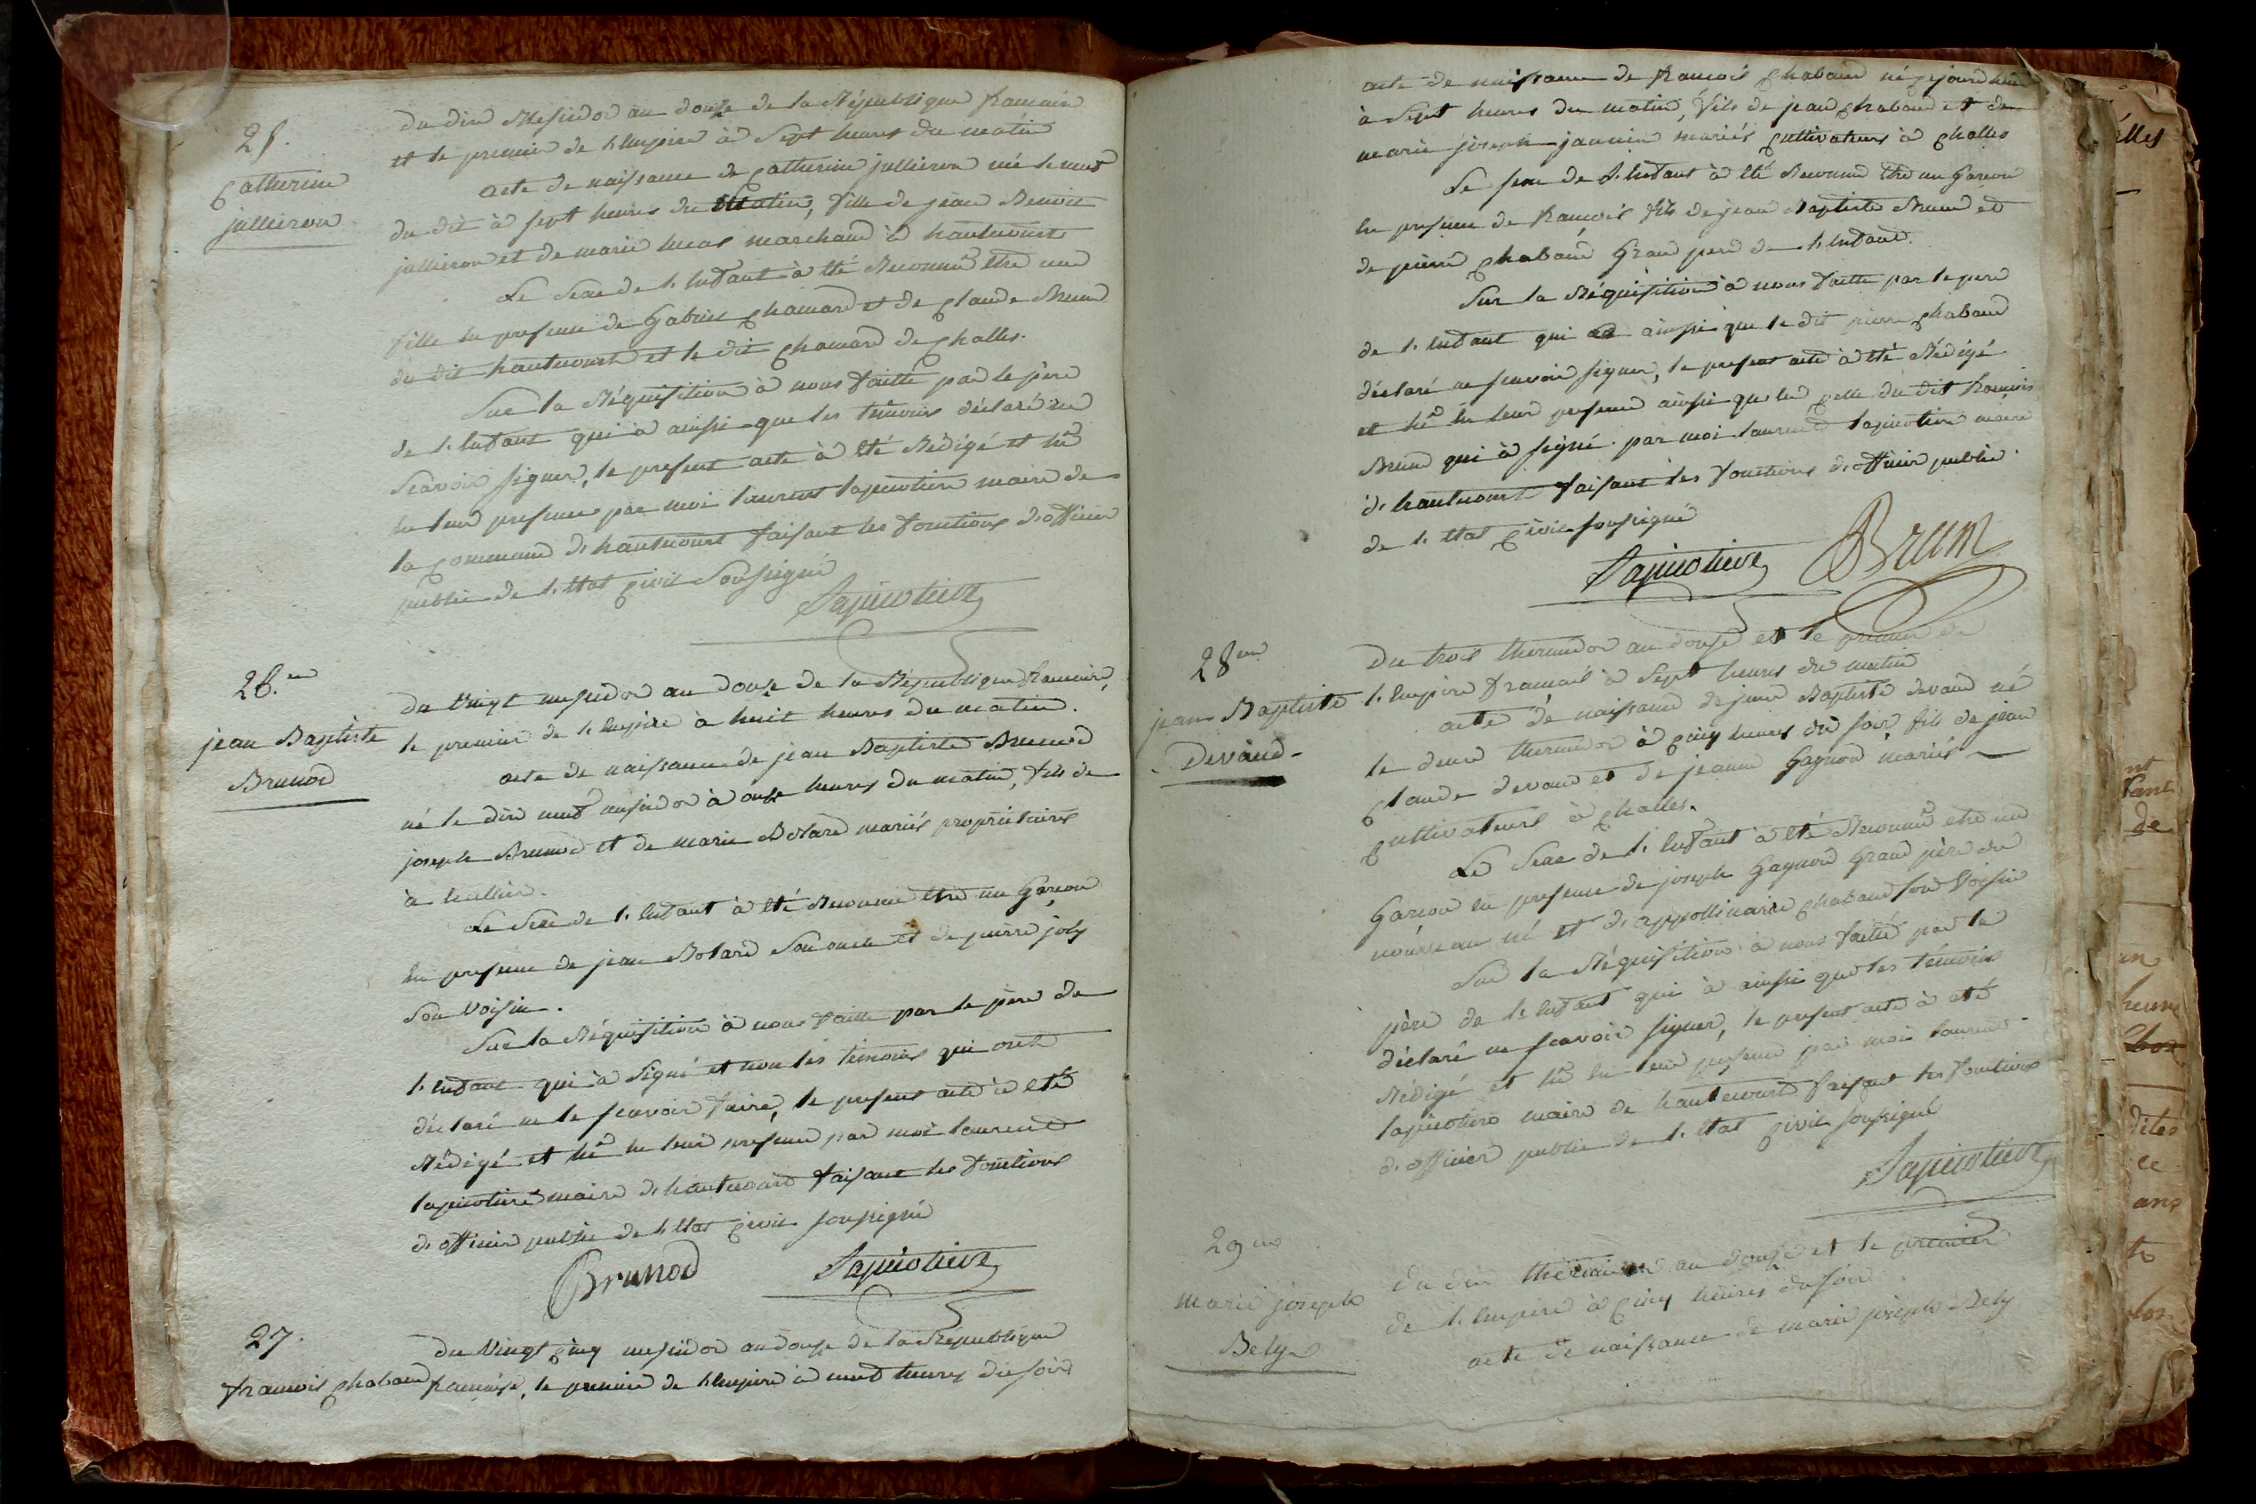 25.
Catherine
jullieron
du dix Messidor an douze de la République francaise
et le premier de l'Empire à Sept heures du matin
acte de naissance de Catherine jullieron née le neuf
du dit à sept heures du Matin, fille de jean Benoit
jullieron et de marie lucas marchand à hautecourt
Le Sexe de l'enfant à été Reconnu être une
fille en presence de Gabriel Chamard et de Claude Brun
du dit hautecourt et le dit Chamard de Challes.
Sur la Réquisition à nous faitte par le père
de l'enfant qui à ainsi que les témoins déclaré ne
Scavoir signer, le present acte à été Rédigé et lû
en leur presence par moi laurent lapicotiere maire de
la Commune d'hautecourt faisant les fonctions d'officier
public de l'état Civil Soussigné
Lapicotiere
26.en
jean Baptiste
Brunod
du Vingt messidor an douze de la République francaise,
le premier de l'Empire à huit heures du matin.
acte de naissance de jean Baptiste Brunod
né le dix neuf messidor à onze heures du matin, fils de
joseph Brunod et de marie Bolard mariés propriétaires
à
Le Sexe de l'enfant à été Reconnu être un Garcon
en presence de jean Bolard Son oncle et de pierre joly
Son Voisin.
Sur la Réquisition à nous faitte par le père de
l'enfant qui à Signé et non les témoins qui ont
déclaré ne le scavoir faire, le present acte à été
Rédigé et lû en leur presence par moi laurent
lapicotiere maire d'hautecourt faisant les fonctions
d'officier public de l'état Civil soussigné
Brunod Lapicotiere
27.
francois Chaband
du Vingt Cinq messidor an douze de la République
francaise, le premier de l'Empire à neuf heures du soir
acte de naissance de francois Chaband né cejourd'hui
à Sept heures du matin, fils de jean Chaband et de
marie joseph jannin mariés Cultivateurs à Challes
Le sexe de l'enfant à été Reconnu être un Garcon
en presence de francois fils de jean Baptiste Brun et
de pierre Chaband Grand pere de l'enfant.
Sur la Réquisition à nous faitte par le pere
de l'enfant qui a ainsi que le dit pierre Chaband
déclaré ne scavoir signer, le present acte à été Rédigé
et lû en leur presence ainsi qu'en celle du dit francois
Brun qui à signé. par moi laurent lapicotiere maire
d'hautecourt faisant les fonctions d'officier public
de l'état Civil soussigné
Lapicotiere Brun
28en
jean Baptiste
Devaud
Du trois thermidor an douze et le premier de
l'Empire francais à Sept heures du matin
acte de naissance de jean Baptiste devaud né
le deux thermidor à Cinq heures du soir, fils de jean
Claude devaud et de jeanne Gagnon mariés
Cultivateurs à Challes.
Le Sexe de l'enfant à été Reconnu etre un
Garcon en presence de joseph Gagnon Grand père du
nouveau né et d'appollinaire Chaband son Voisin
Sur la Réquisition à nous faitte par le
père de l'enfant qui à ainsi que les témoins
déclaré ne scavoir signer, le present acte à été
Rédigé et lû en leur presence par moi laurent
lapicotiere maire de hautecourt faisant les fonctions
d'officier public de l'état Civil soussigné
Lapicotiere
29en
marie joseph
Bely
Du dix thermidor an douze et le premier
de l'Empire à Cinq heures du soir
acte de naissance de marie joseph Bely
elles
nt
fant
de
un
heures
dites
ce
ans
te